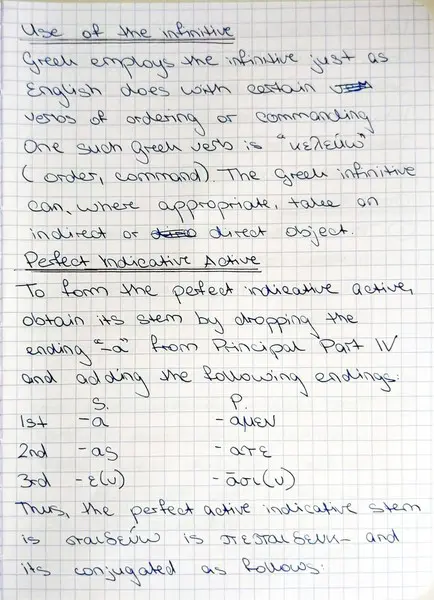 Use of the infinitive
Greek employs the infinitive just as
English does with certain
verbs of ordering or commanding
One such Greek verb is "κελεύω"
(order, command). The Greek infinitive
can, where appropriate, take an
indirect or direct object.
Perfect Indicative Active
To form the perfect indicative active,
obtain its stem by dropping the
ending "-α" from Principal Part IV
and adding the following endings:
S. P.
1st -α -αμεν
2nd -ας -ατε
3rd -ε(ν) -ᾱσι(ν)
Thus, the perfect active indicative stem
is παιδεύω is πεπαιδευκ- and
its conjugated as follows: